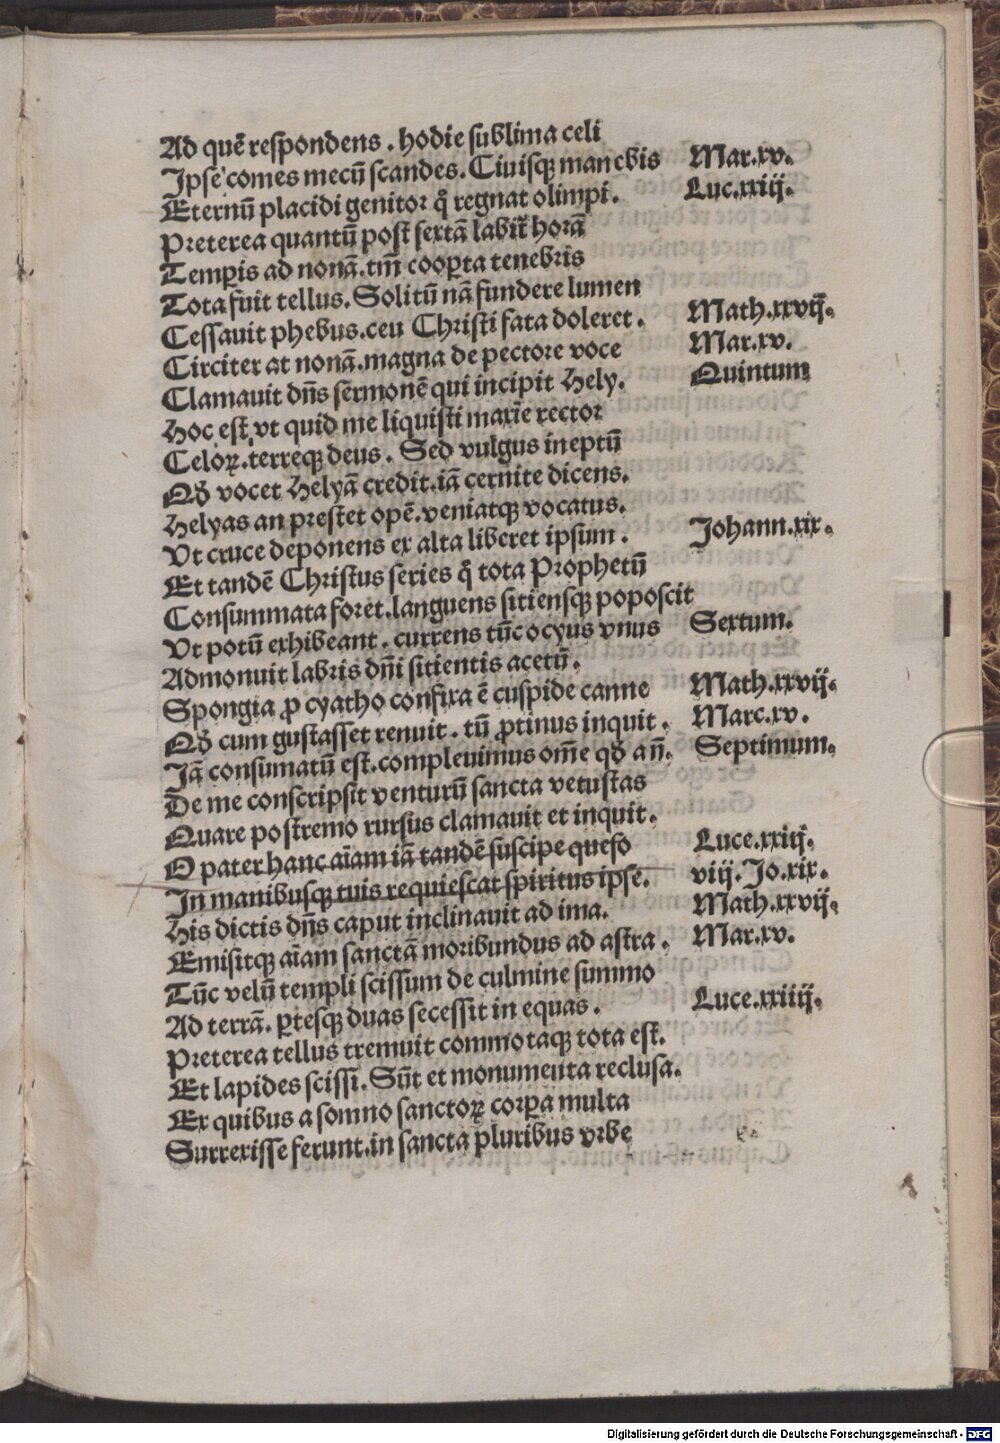 Ad quē respondens . hodie sublima celi
Ipse comes mecū scandes. Ciuisqꝫ manebis Mar.xv.
Eternū placidi genitor q̄ regnat olimpi. Luc.xxiij.
Preterea quantū post sextā labit̄ horā
Temꝑis ad nonā.tm̄ cooꝑta tenebris
Tota fuit tellus. Solitū nā fundere lumen
Cessauit phebus.ceu Christi fata doleret. Math.xxvij.
Circiter at nonā.magna de pectore voce Mar.xv.
Clamauit dn̄s sermonē qui incipit Hely. Quintum
Hoc est vt quid me liquisti maxīe rector
Celoꝝ.terreqꝫ deus. Sed vulgus ineptū
Qd̄ vocet Helyā credit.iā cernite dicens.
Helyas an prestet opē.veniatqꝫ vocatus.
Vt cruce deponens ex alta liberet ipsum. Johann.xix.
Et tandē Christus series q̄ tota Prophetū
Consummata foret.languens sitiensqꝫ poposcit
Vt potū exhibeant. currens tūc ocyus vnus Sextum.
Admonuit labris dn̄i sitientis acetū.
Spongia ꝓ cyatho confixa ē cuspide canne Math.xxvij.
Qd̄ cum gustasset renuit. tū ꝓtinus inquit. Marc.xv.
Jā consumatū est.compleuimus om̄e qd̄ an̄. Septimum.
De me conscripsit venturū sancta vetustas
Quare postremo rursus clamauit et inquit.
O pater hanc aīam iā tandē suscipe queso Luce.xxiij.
In manibusqꝫ tuis requiescat spiritus ipse. viij. Jo.xix.
His dictis dn̄s caput inclinauit ad ima. Math.xxvij.
Emisitqꝫ aīam sanctā moribundus ad astra. Mar.xv.
Tūc velū templi scissum de culmine summo
Ad terrā. ꝑtesqꝫ duas secessit in equas. Luce.xxiiij.
Preterea tellus tremuit commotaqꝫ tota est.
Et lapides scissi. Sūt et monumenta reclusa.
Ex quibus a somno sanctoꝝ corꝑa multa
Surrexisse ferunt.in sancta pluribus vrbe
Digitalisierung gefördert durch die Deutsche Forschungsgemeinschaft - DFG